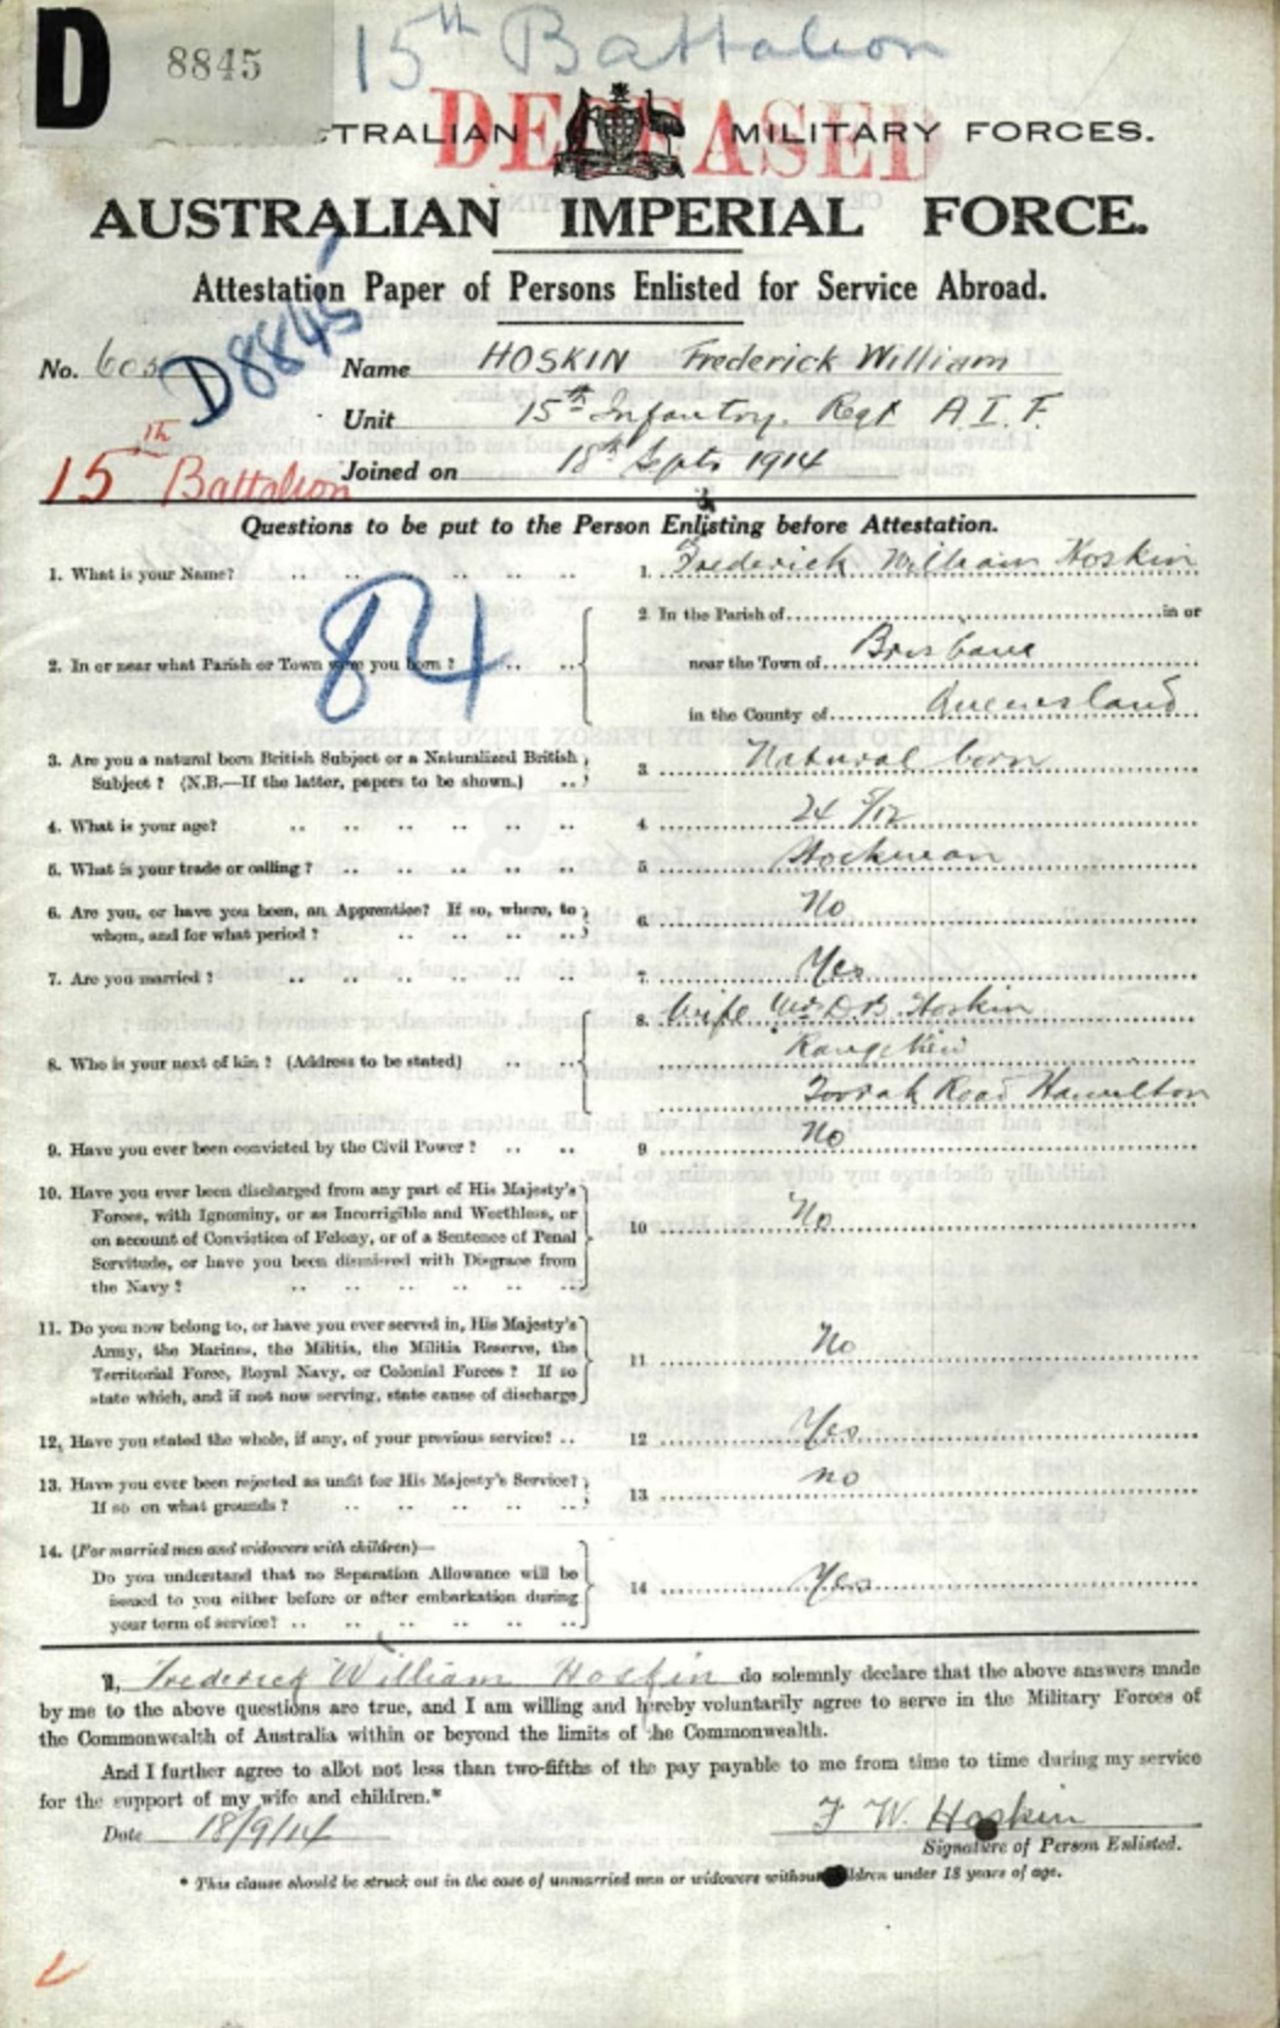 D 8845 15th Battalion
DECEASED
STRALIAN MILITARY FORCES.
AUSTRALIAN IMPERIAL FORCE.
Attestation Paper of Persons Enlisted for Service Abroad.
D8845
No. 603 Name HOSKIN Frederick William
Unit 15th Infantry. Regt A.I.F.
15th Battalion Joined on 18th Septr 1914
Questions to be put to the Person Enlisting before Attestation.
1. What is your Name? .. .. .. .. .. .. 1. Frederick William Hoskin
84
2. In the Parish of in or
2. In or near what Parish or Town were you born? .. .. near the Town of Brisbane
in the County of Queensland
3. Are you a natural born British Subject or a Naturalized British 3 Natural born
Subject? (N.B.—If the latter, papers to be shown.) ..
4. What is your age? .. .. .. .. .. .. 4 24 5/12
5. What is your trade or calling? .. .. .. .. .. 5 Stockman
6. Are you, or have you been, an Apprentice? If so, where, to 6. No
whom, and for what period? .. .. .. ..
7. Are you married? .. .. .. .. .. .. 7. Yes
8. Wife Mrs D.B. Hoskin
8. Who is your next of kin? (Address to be stated) .. .. Range View
Toorak Road Hamilton
9. Have you ever been convicted by the Civil Power? .. .. 9 No
10. Have you ever been discharged from any part of His Majesty's
Forces, with Ignominy, or as Incorrigible and Worthless, or 10 No
on account of Conviction of Felony, or of a Sentence of Penal
Servitude, or have you been dismissed with Disgrace from
the Navy? .. .. .. .. .. ..
11. Do you now belong to, or have you ever served in, His Majesty's
Army, the Marines, the Militia, the Militia Reserve, the 11 No
Territorial Force, Royal Navy, or Colonial Forces? If so
state which, and if not now serving, state cause of discharge
12. Have you stated the whole, if any, of your previous service? .. 12 Yes
13. Have you ever been rejected as unfit for His Majesty's Service? 13 no
If so on what grounds? .. .. .. .. ..
14. (For married men and widowers with children)—
Do you understand that no Separation Allowance will be 14 Yes
issued to you either before or after embarkation during
your term of service? .. .. .. .. .. ..
I, Frederick William Hoskin do solemnly declare that the above answers made
by me to the above questions are true, and I am willing and hereby voluntarily agree to serve in the Military Forces of
the Commonwealth of Australia within or beyond the limits of the Commonwealth.
And I further agree to allot not less than two-fifths of the pay payable to me from time to time during my service
for the support of my wife and children.*
Date 18/9/14 F W. Hoskin
Signature of Person Enlisted.
* This clause should be struck out in the case of unmarried men or widowers without children under 18 years of age.